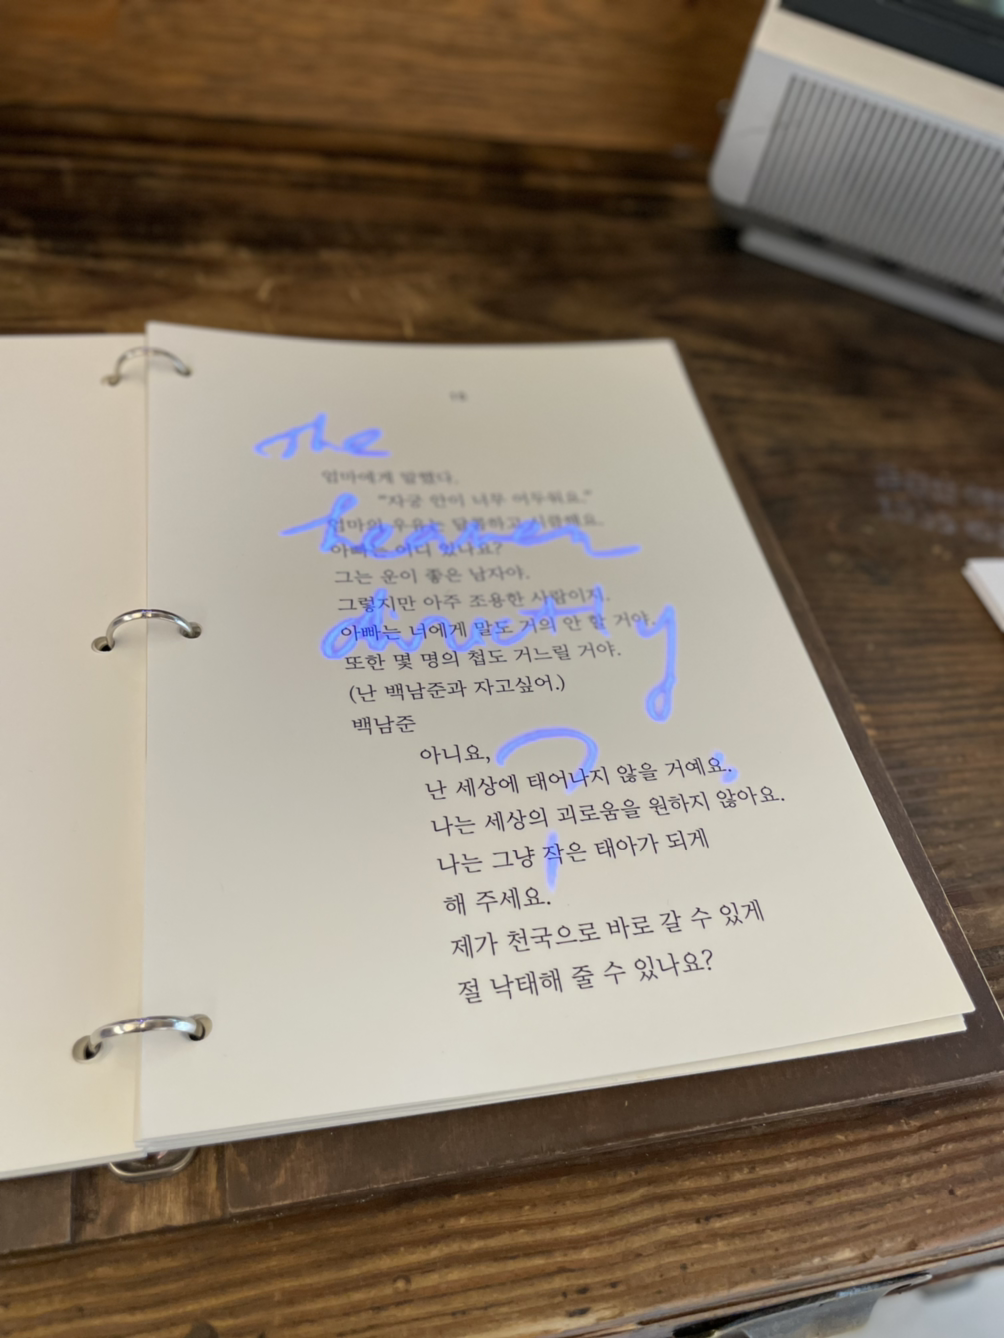 The
엄마에게 말했다.
"자궁 안이 너무 어두워요."
엄마의 우유는 달콤하고 시큼해요.
heaven
아빠는 어디 있나요?
그는 운이 좋은 남자야.
그렇지만 아주 조용한 사람이지.
directly
아빠는 너에게 말도 거의 안 할 거야.
또한 몇 명의 첩도 거느릴 거야.
(난 백남준과 자고싶어.)
백남준
아니요,
난 세상에 태어나지 않을 거예요.
나는 세상의 괴로움을 원하지 않아요.
나는 그냥 작은 태아가 되게
해 주세요.
제가 천국으로 바로 갈 수 있게
절 낙태해 줄 수 있나요?